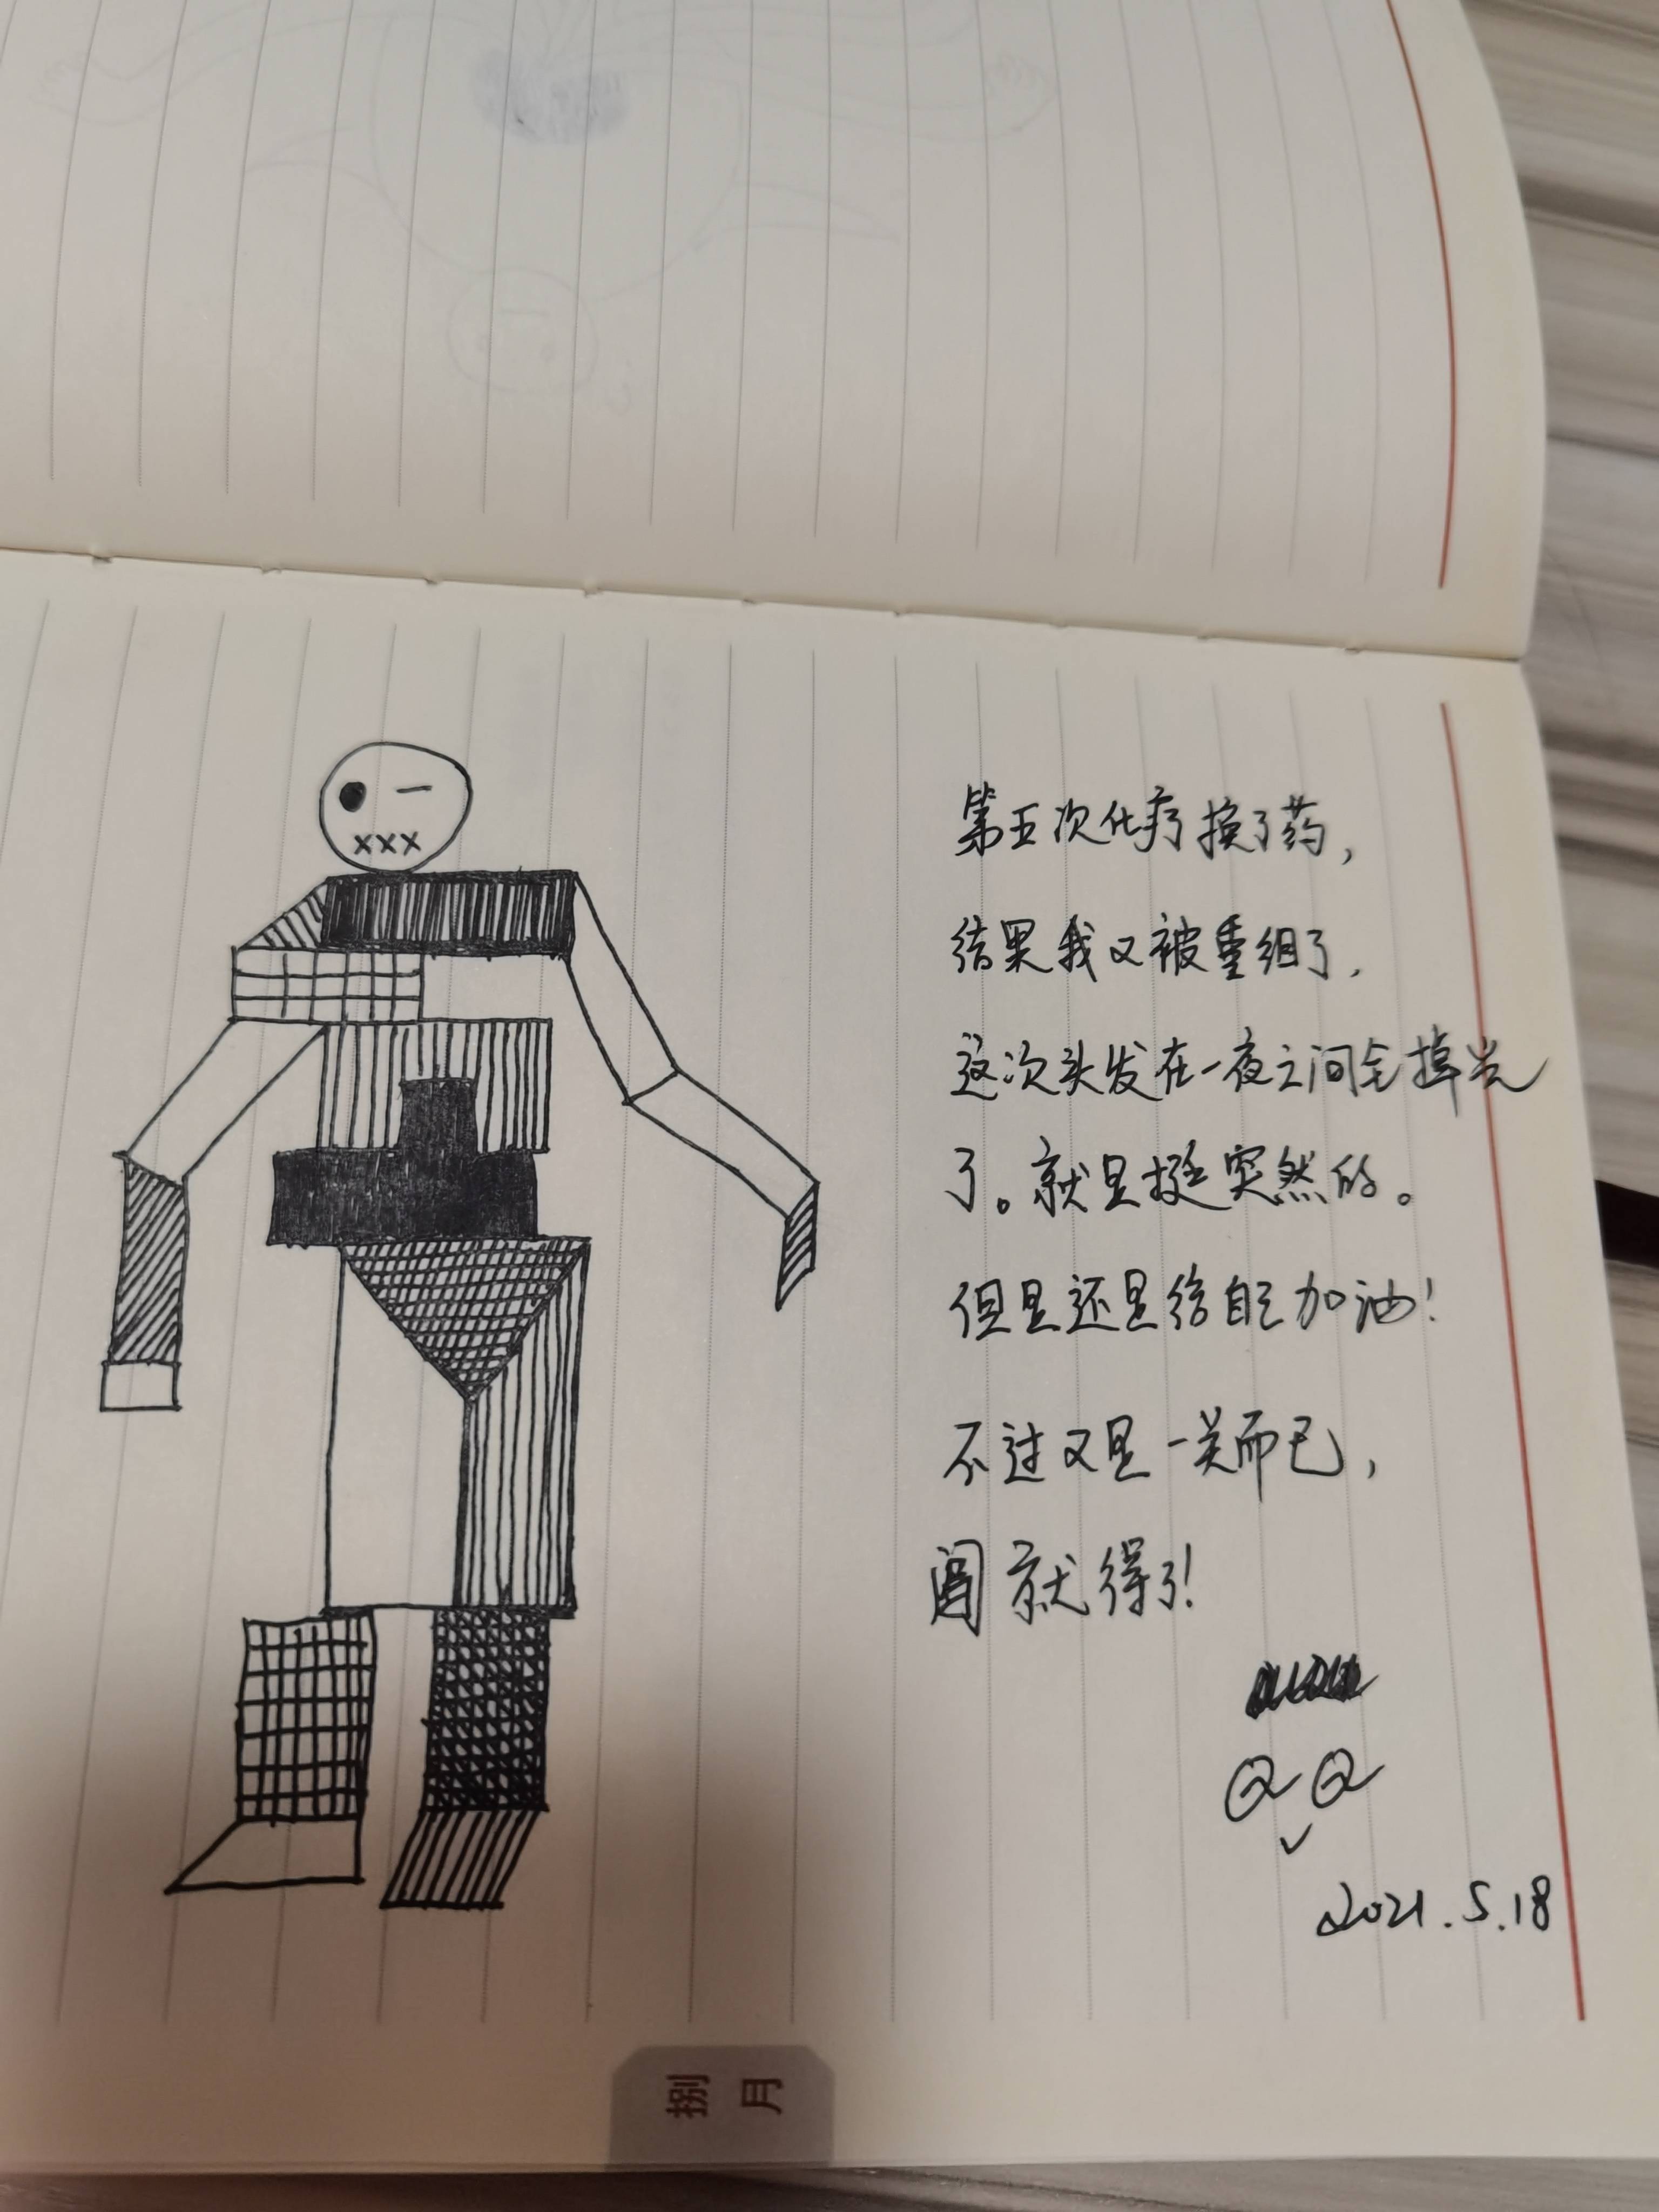 第五次化疗换了药，
结果我又被重组了，
这次头发在一夜之间全掉光
了。就是挺突然的。
但是还是给自己加油！
不过又是一关而已，
闯就得了！
2021.5.18
捌月